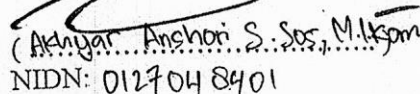 (Akhyar Anshori S.Sos., M.I.Kom
NIDN: 0127048401